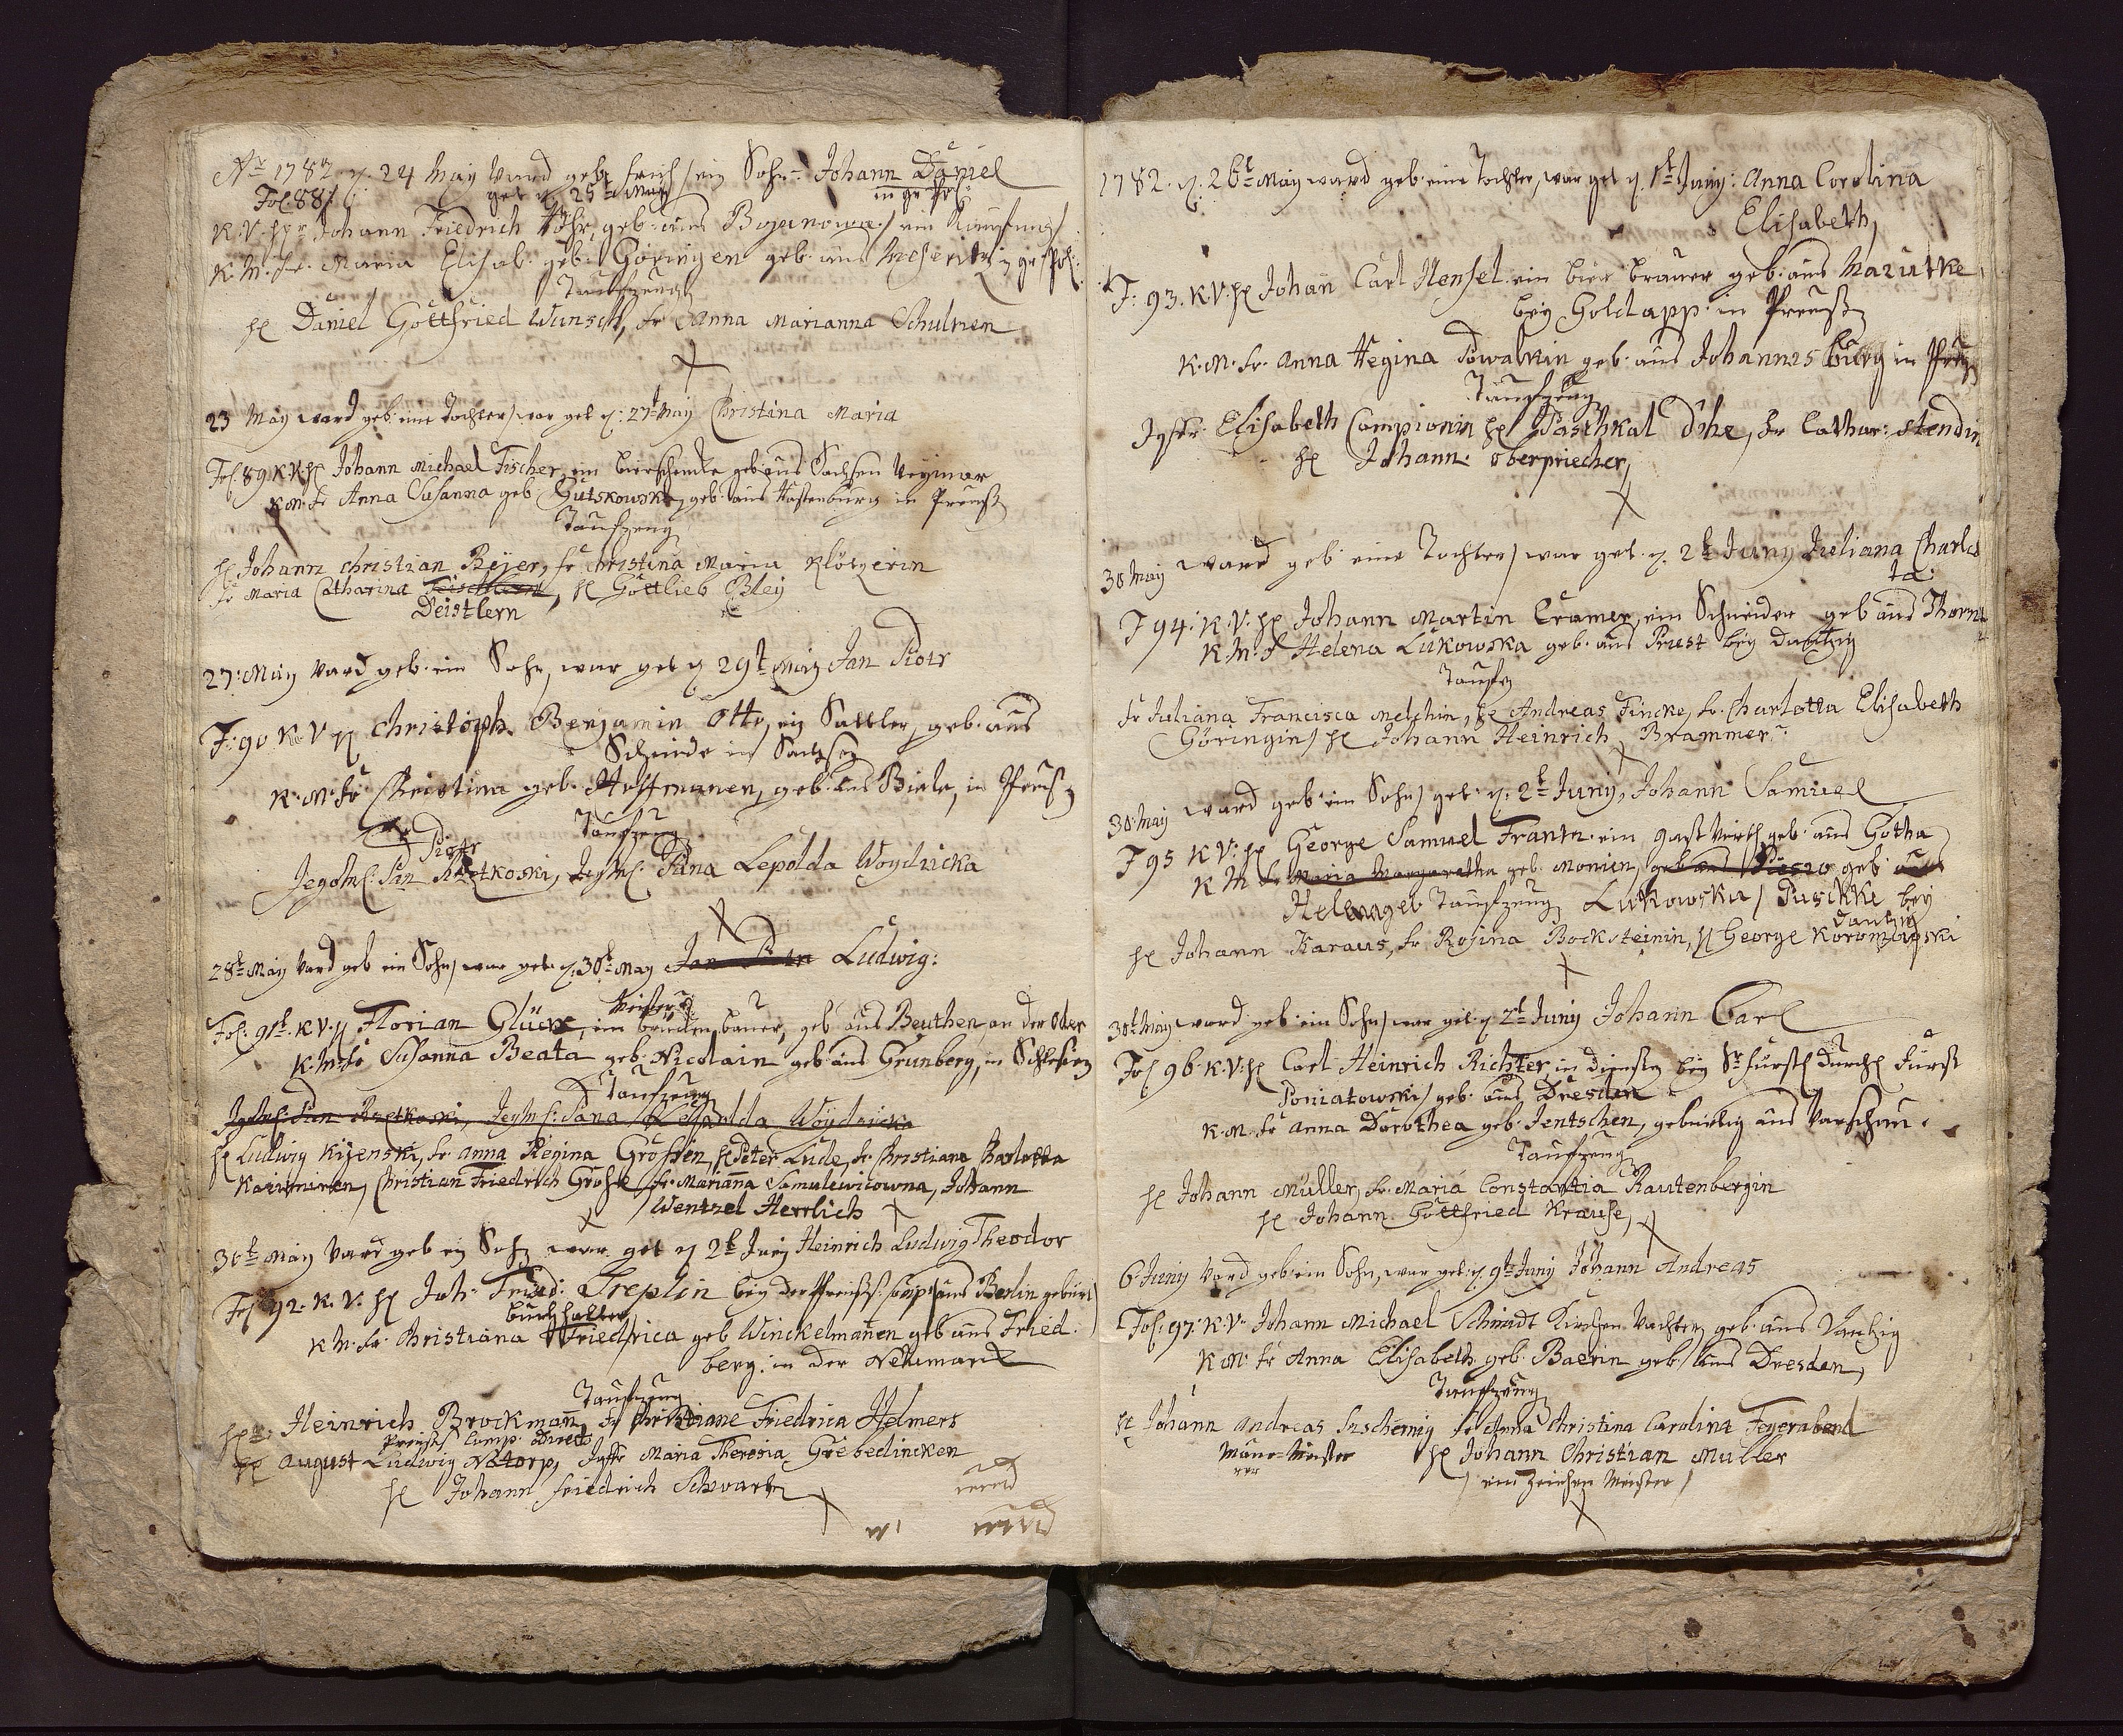 Ao 1782. d. 24 May ward geb. früh ein Sohn Johann Daniel
Fol 88. get d. 25 t May in gr Pol:
K. V. hr Johann Friedrich Höhr, geb. aus Bojanowa ein Kaufman
K. M. fr. Maria Elisab. geb. Göringen geb. aus Meseritz in gr Pol:
Taufzeug
H Daniel Gottfried Wunsch, fr Anna Marianna Schultzen
23 May ward geb. eine Tochter, war get d: 27 t May Christina Maria
Fol. 89. K. V. H Johann Michael Fischer, ein bierschencke geb aus Sachsen Weymar
K. M. fr Anna Susanna geb Gutskowska, geb. aus Rastenburg in Preuss
Taufzeug
H Johann Christian Beyer, fr Christina Maria Klötzerin
fr Maria Catharina Teischlern, H Gottlieb Bley
Deistlern
27: May ward geb. ein Sohn, war get d 29 t May Jan Piotr
F: 90 K. V H Christoph Benjamin Otto, ein Sattler, geb. aus
in Sachsen
K. M. fr Christina geb. Hoffmanen, geb. aus Biale, in Preus
Taufzeug
Piotr
Jegoml: Pan Rzetkoski, Jeyml: Pana Lepolda Woydzicka
28 t May ward geb ein Sohn, war get d. 30 t May Jan Piotr Ludwig:
Meister
Fol: 91 K. V. H Florian Glück, ein brücken bauer, geb aus Beuthen, an der Oder
K. M. fr Susanna Beata geb. Nicolain geb aus Grunberg, in Schlesien
Taufzeug
Jegoml: Pan Rzetkoski, Jeyml: Pana Lepolda Woydzicka
H Ludwig Kijenski, fr. anna Regina Grossen, H Peter Lude, fr. Christiana Barlotta
Christian Friedrich Grosse fr. Mariana Samulewicowna, Johann
Wentzel Herrlich
30 t May ward geb ein Sohn war get d 2 t Juny Heinrich Ludwig Theodor
Fol 92. K. V. H Joh: Fried: Treplin bey der Preuss. Comp: aus Berlin gebürt
buchhalter
K M. fr. Christiana Friedrica geb Winckelmanen geb aus Fried
berg. in der Neumarck
Taufzeug
H Heinrich Brockman, fr Christiane Friedrica Helmers
Preuss Comp. Direct
H August Ludwig Natorp, Jgfr Maria Theresia Griebedincken
H Johann Friedrich Schwartz
1782. d. 26 t May ward geb. eine Tochter, war get d. 1 t Juny: Anna Carolina
Elisabeth,
F: 93. K V. H Johan Carl Hensel. ein bier brauer geb. aus Mazutke
bey Goldapp in Preuss
K. M. fr. Anna Regina Powalkin geb. aus Johannesburg in Preus
Taufzeug
Jgfr. Elisabeth Campionin H Paschkal Dihe, fr Cathar: Stendin
H Johann Oberpriecher,
30 May ward geb eine Tochter, war get. d. 2 t Juny Juliana Charlot
ta
F 94. K. V. H Johann Martin Cramer, ein Schneider geb aus Thorn
K. M. fr Helena Lukowska geb. aus Prust bey dantzig
Taufz
fr Juliana Francisca Melchin, H Andreas Fincke, fr. Charlotta Elisabeth
Göringin, H Johann Heinrich Brammer.
30. May ward geb. ein Sohn, get. d. 2 t Juny, Johann Samuel
F 95 K V: H George Samuel Frantz. ein gast Wirth geb. aus Gotha
K M fr Maria Margaretha geb. Monien, geb aus geb aus
Helena geb Taufzeug Lukowska, Puschke bey
dantzig
H Johann Karaus, fr Rosina Bocksteinin, H George Koronzowski
30 t May ward geb. ein Sohn, war get. d 2 t Juny Johann Carl
Fol 96. K. V: H Carl Heinrich Richter in diensten bey Sr. fürstl Durchl Fürst
Poniatowski, geb. aus Dresden
K. M. fr Anna Dorothea geb. Jentschen, gebürtig aus Warschau.
Taufzeug
H Johann Muller, fr. Maria Constantia Rautenbergin
H Johann Gottfried Krause,
6 Juny ward geb. ein Sohn, war get: d. 9 t Juny Johann Andreas
Fol: 97. K. V. Johann Michael Schmidt Kirchen Wachter geb. aus Dantzig
K. M: fr Anna Elisabeth geb. Baerin geb. aus Dresden,
Taufzeug
H Johann Andreas fr Anna Christina Carolina Feyerabend
Maur-Meister H Johann Christian Muller
ein Zeichen Meister